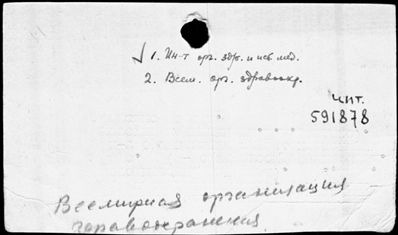 √ 1. Ин-т орг. здр. и ист. мед.
2. Всем. орг. здравоохр.
чит.
591878
Всемирная организация
здравоохранения.